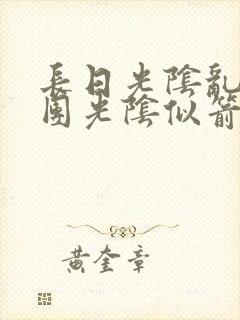 長日光陰亂
團光陰似箭
黃奎章